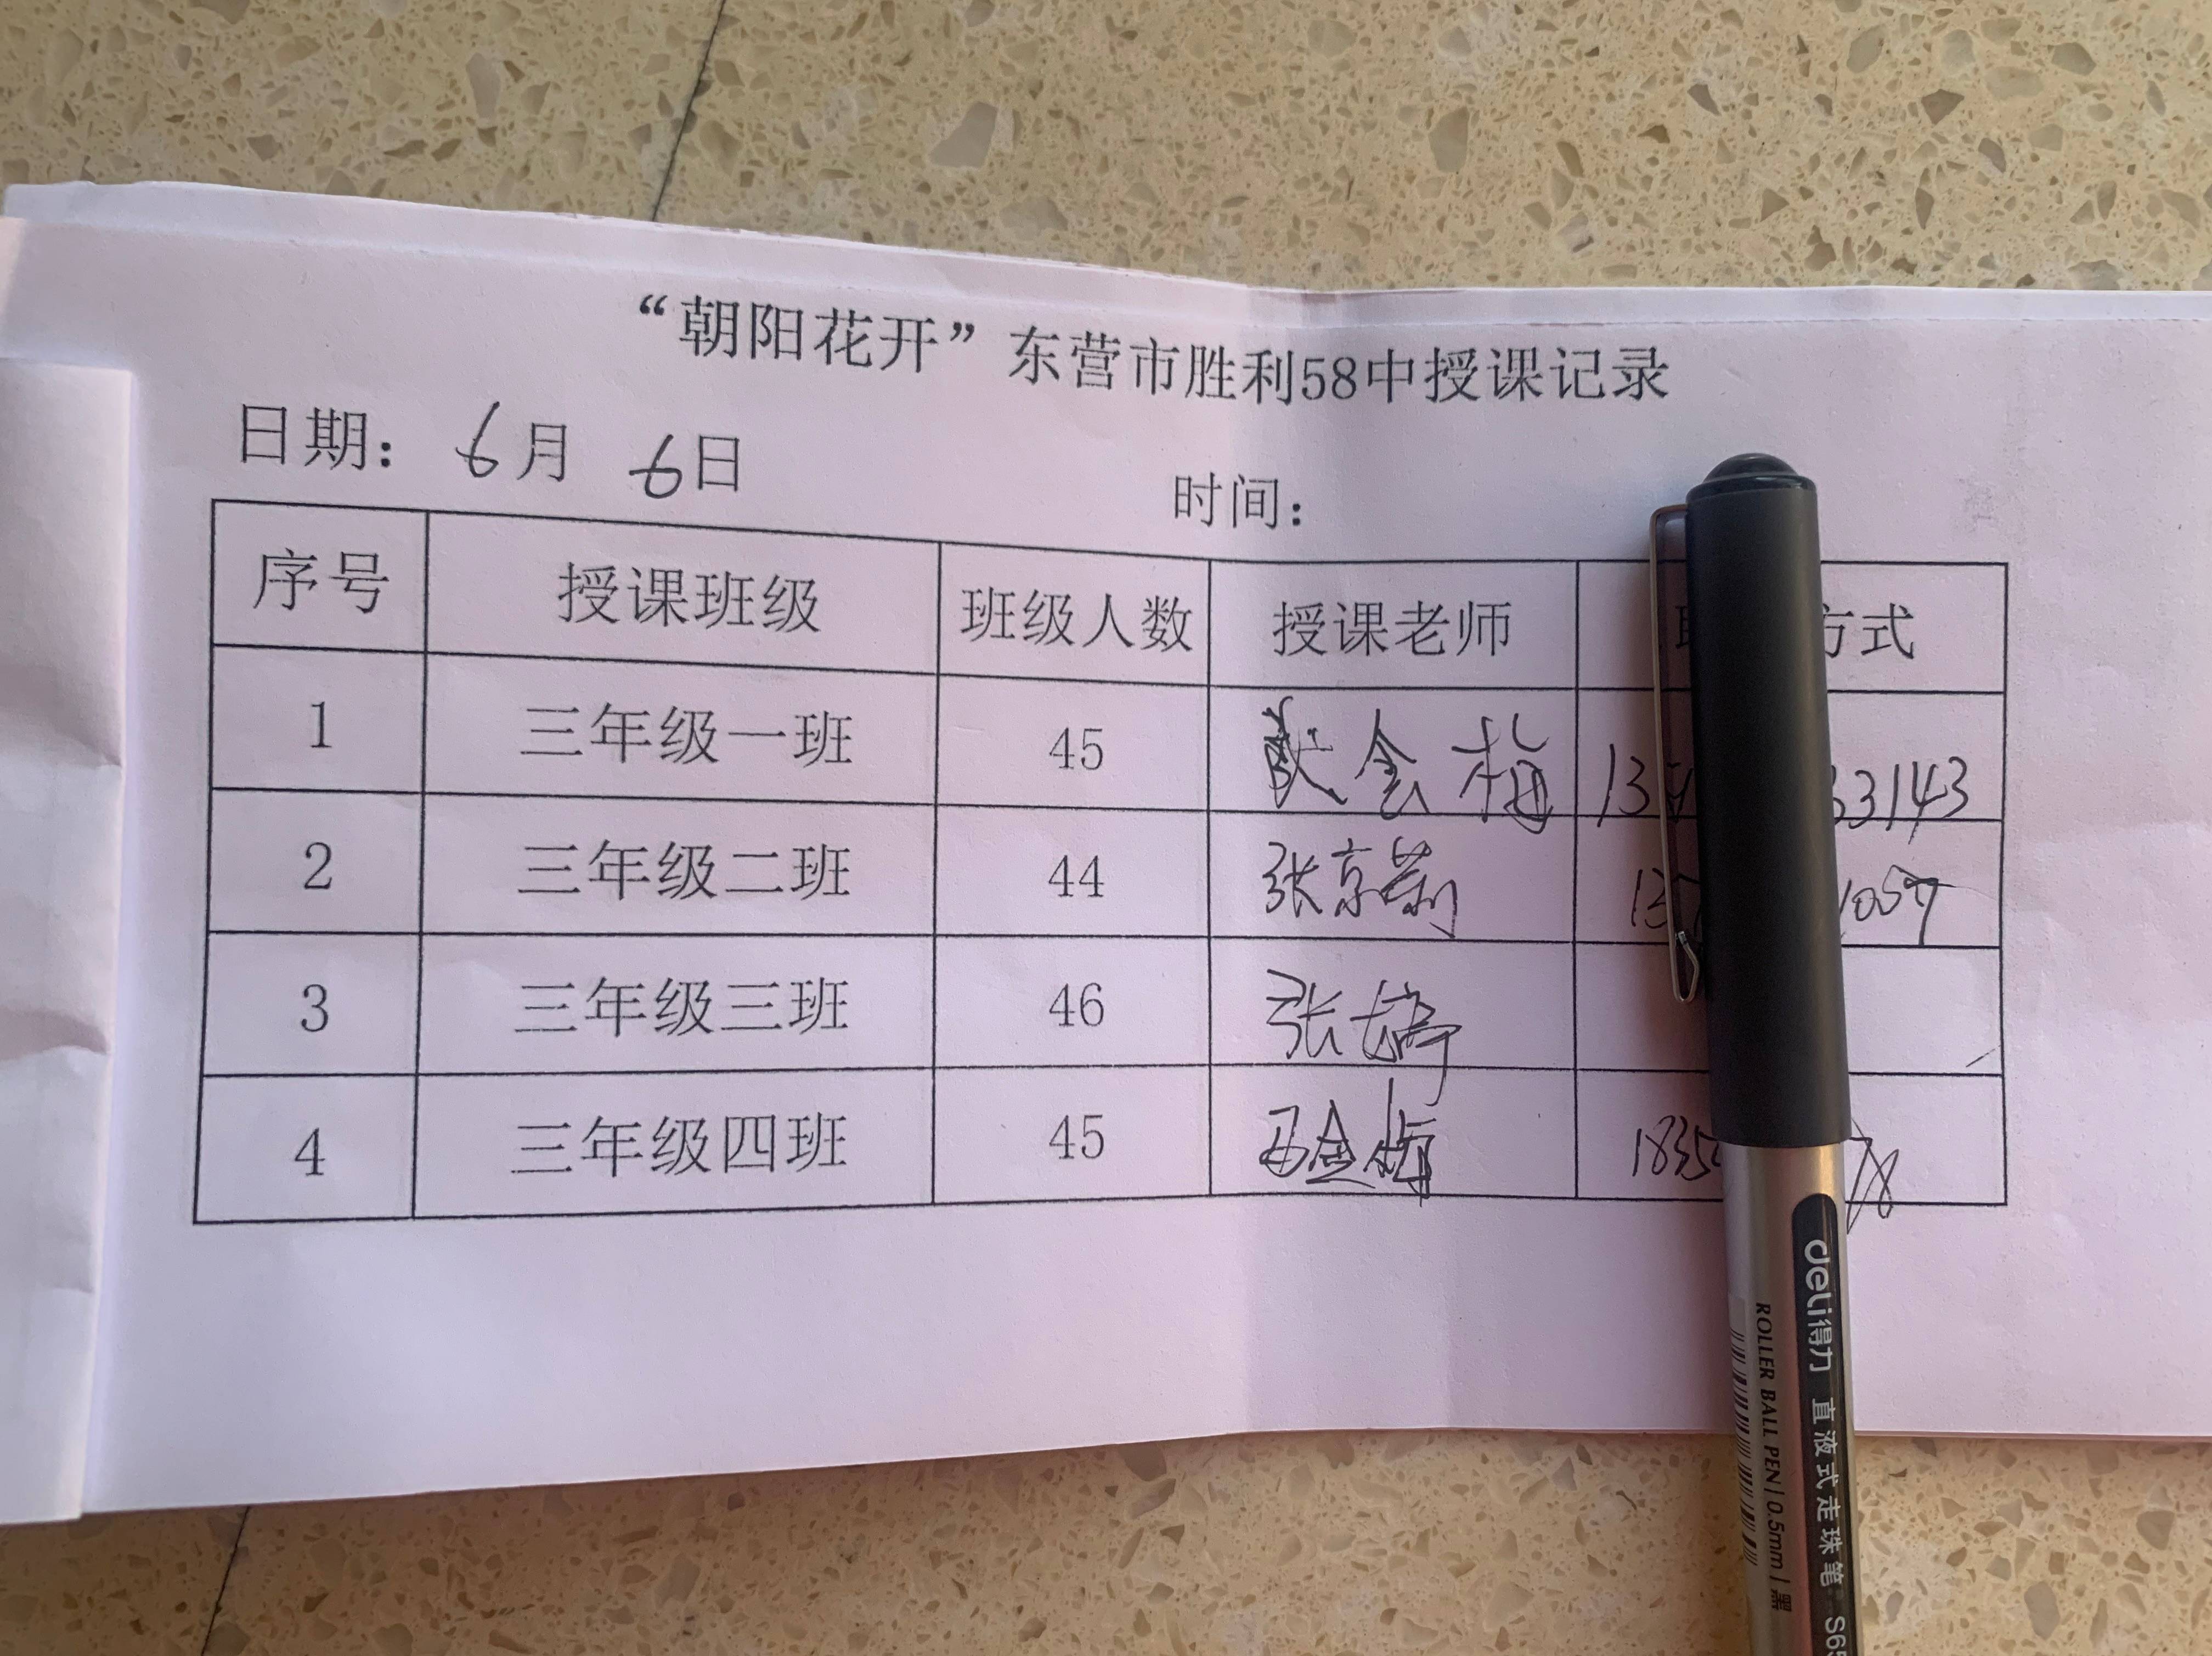 “朝阳花开”东营市胜利58中授课记录
日期： 6月 6日 时间：
序号 授课班级 班级人数 授课老师 方式
1 三年级一班 45 会梅 13 33143
2 三年级二班 44 张京莉 137 1057
3 三年级三班 46 张婷
4 三年级四班 45 1835 78
deli得力 直液式走珠笔 S65
ROLLER BALL PEN | 0.5mm | 黑